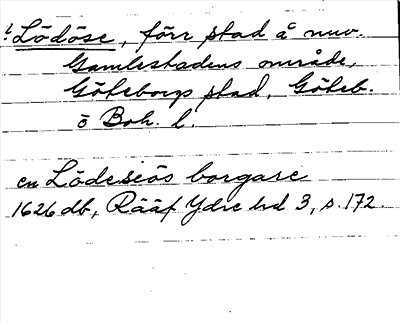 ? Lödöse, förr stad å nuv.
Gamlestadens område,
Göteborgs stad, Göteb.
o Boh. l.
en Lödeseös borgare
1626 db, Rääf Ydre hd 3, s. 172.